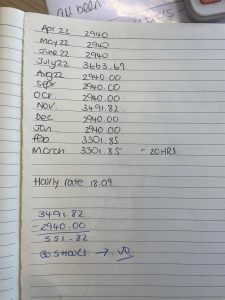 all been
Apr 22 2940
May 22 2940
June 22 2940
July 22 3663.69
Aug 22 2940.00
Sept 2940.00
Oct. 2940.00
Nov. 3491.82
Dec 2940.00
Jan 2940.00
feb 3301.85
March 3301.85 - 20 HRS
Hourly rate 18.09.
3491.82
- 2940.00
551.82
30.5 Hours →